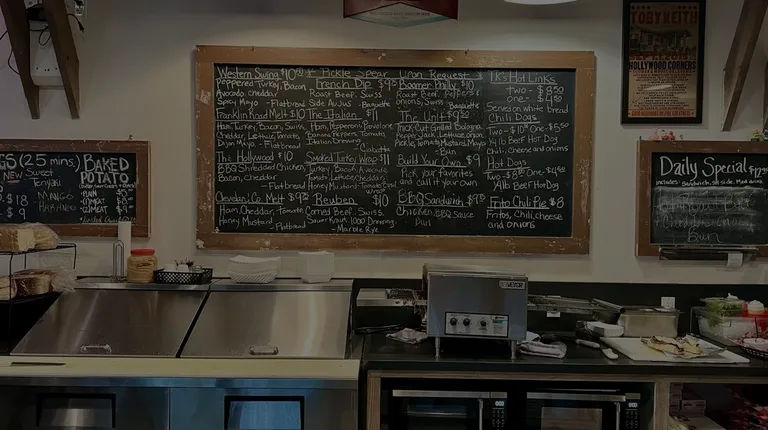 GS (25 mins)
NEW Sweet
Teriyaki
$18
MANGO
HABANERO
$9
BAKED
POTATO
PLAIN
1) MEAT
2) MEAT $9
Western Swing $10
Peppered Turkey, Bacon
Avocado, cheddar
Spicy Mayo - Flatbread
Franklin Road Melt $10
Ham, Turkey, Bacon, Swiss
Cheddar, Lettuce, Tomato
Dijon Mayo - Flatbread
The Hollywood $10
BBQ Shredded Chicken
Bacon, Cheddar
- Flatbread
Cleveland Co. Melt
Ham, Cheddar, Tomato
Honey Mustard - Flatbread
Pickle Spear
French Dip $9
Roast Beef, Swiss
Side Au Jus - Baguette
The Italian $11
Ham, Pepperoni, Provolone
Banana Peppers, Tomato
Italian Dressing
Ciabatta
Smoked Turkey Wrap $11
Turkey, Bacon, Avocado
Tomato, Lettuce, Cheddar
Honey Mustard - Tomato
Reuben $10
Corned Beef, Swiss
Sauer Kraut, 1000 Dressing
- Marble Rye
Upon Request
Boomer Philly $10
Roast Beef, Peppers
onions, Swiss
Baguette
The Unit
Thick Cut Grilled Bologna
Pepper Jack, Lettuce, Onion
Pickle, Tomato, Mustard, Mayo
- Bun
Build Your Own $9
Pick your favorites
and call it your own
BBQ Sandwich
Chicken, BBQ Sauce
Bun
TK's Hot Links
two - $8.50
one - $4.50
Served on white bread
Chili Dogs
Two - $10 One - $5.50
1/4 lb Beef Hot Dog
Chili, Cheese and onions
Hot Dogs
Two - $8 One - $4.50
1/4 lb Beef Hot Dog
Frito Chili Pie $8
Fritos, Chili, cheese
and onions
TOBY KEITH
HOLLYWOOD CORNERS
Daily Special
includes: Sandwich, sit side, Med drink
Bun